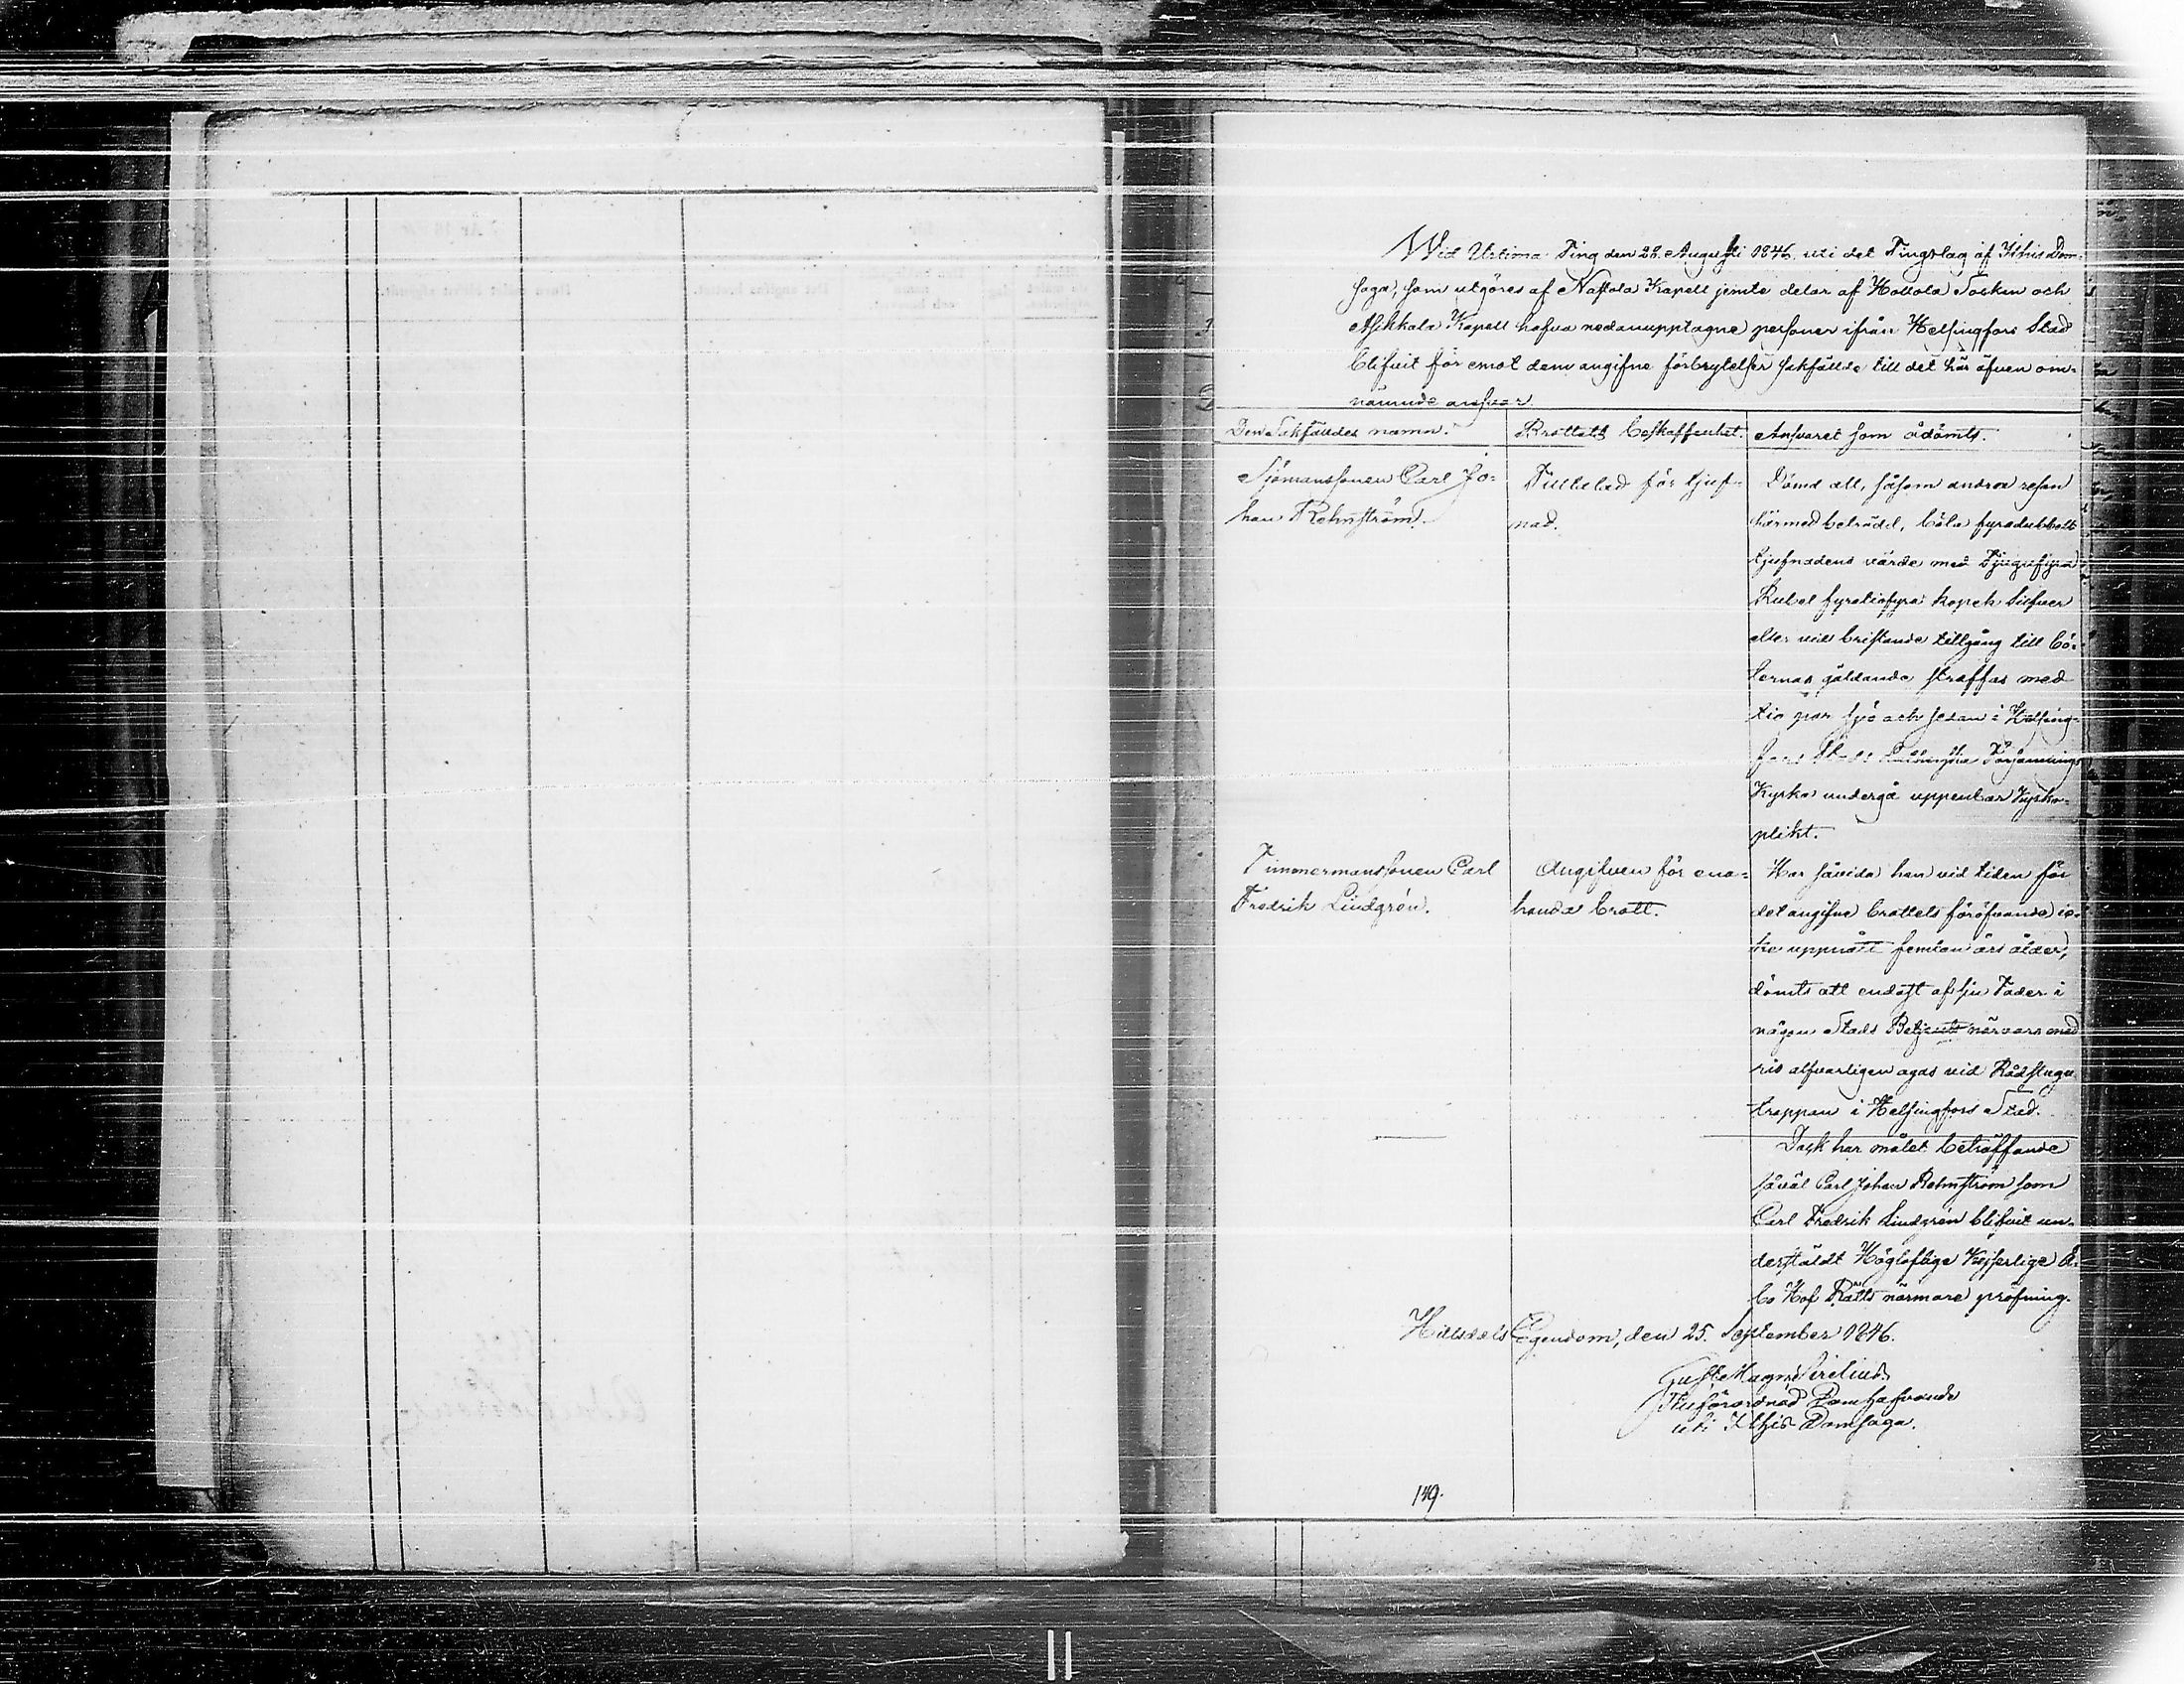 Wid Urtima Ting den 28. Augusti 1846. uti det Tingslag af Ithis Dom-
saga, som utgöres af Nastola Kapell jemte delar af Hollola Socken och
Asikkala Kapell hafva nedanupptagne personer ifrån Helsingfors Stad
blifvit för emot dem angifne förbrytelser sakfällde till det här äfven om-
nämnde ansvar.
Den Sakfälldes namn.
Brottets beskaffenhet.
Ansvaret som ådömts.
Sjömanssonen Carl Jo-
han Rehnström.
Tilltalad för tjuf-
nad.
Dömd att, såsom andra resan
härmed beträdd, böta fyradubbelt
tjufnadens värde med Tjugufyra
Rubel fyratiofyra kopek Silfver
eller vid bristande tillgång till bö-
ternas gäldande straffas med
tio par spö och sedan i Helsing-
fors Stads Församlings
Kyrka undergå uppenbar Kyrko-
plikt.
Timmermanssonen Carl
Fredrik Lindgrén.
Angifven för ena-
handa brott.
Har såvida han vid tiden för
det angifne brottets föröfvande ic-
ke uppnått femton års ålder,
dömts att endast af sin Fader i
någon Stads Betjents närvaro med
ris alfvarligen agas vid Rådstugu
trappan i Helsingfors Stad.
Dock har målet beträffande
såväl Carl Johan Rehnström som
Carl Fredrik Lindgrén blifvit un-
derställdt Högloflige Kejserlige Å-
bo Hof Rätts närmare pröfning.
Hillsdals Egendom, den 25. September 1846.
Gust. Magn. Sirelius
Tillförordnad Domhafvande
uti Ithis Domsaga.
149.